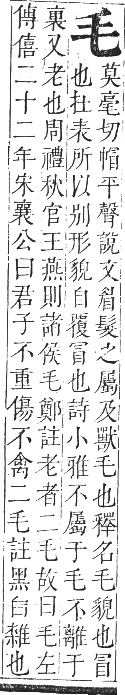 毛
莫毫切帽平聲說文眉髮之屬及獸毛也釋名毛貌也冒
也在表所以別形貌自覆冒也詩小雅不屬于毛不離于
裏又老也周禮秋官王燕則諸侯毛鄭註老者二毛故曰毛左
傳僖二十二年宋襄公曰君子不重傷不禽二毛註黑白雜也